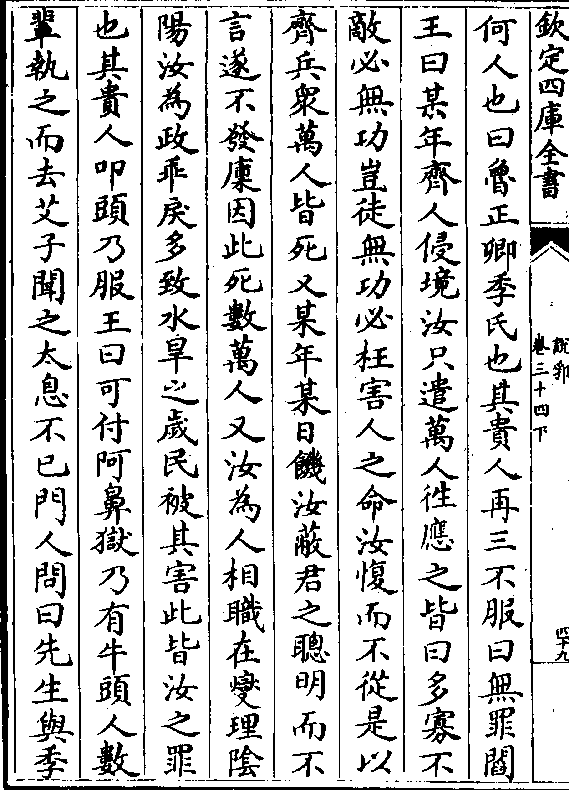 欽定四庫全書
說郛
卷三十四下
四十九
何人也曰魯正卿季氏也其貴人再三不服曰無罪閻
王曰某年齊人侵境汝只遣萬人徃應之皆曰多寡不
敵必無功豈徒無功必枉害人之命汝愎而不從是以
齊兵衆萬人皆死又某年某日饑汝蔽君之聰明而不
言遂不發廩因此死數萬人又汝為人相職在燮理陰
陽汝為政乖戾多致水旱之歲民被其害此皆汝之罪
也其貴人叩頭乃服王曰可付阿鼻獄乃有牛頭人數
輩執之而去艾子聞之太息不已門人問曰先生與季